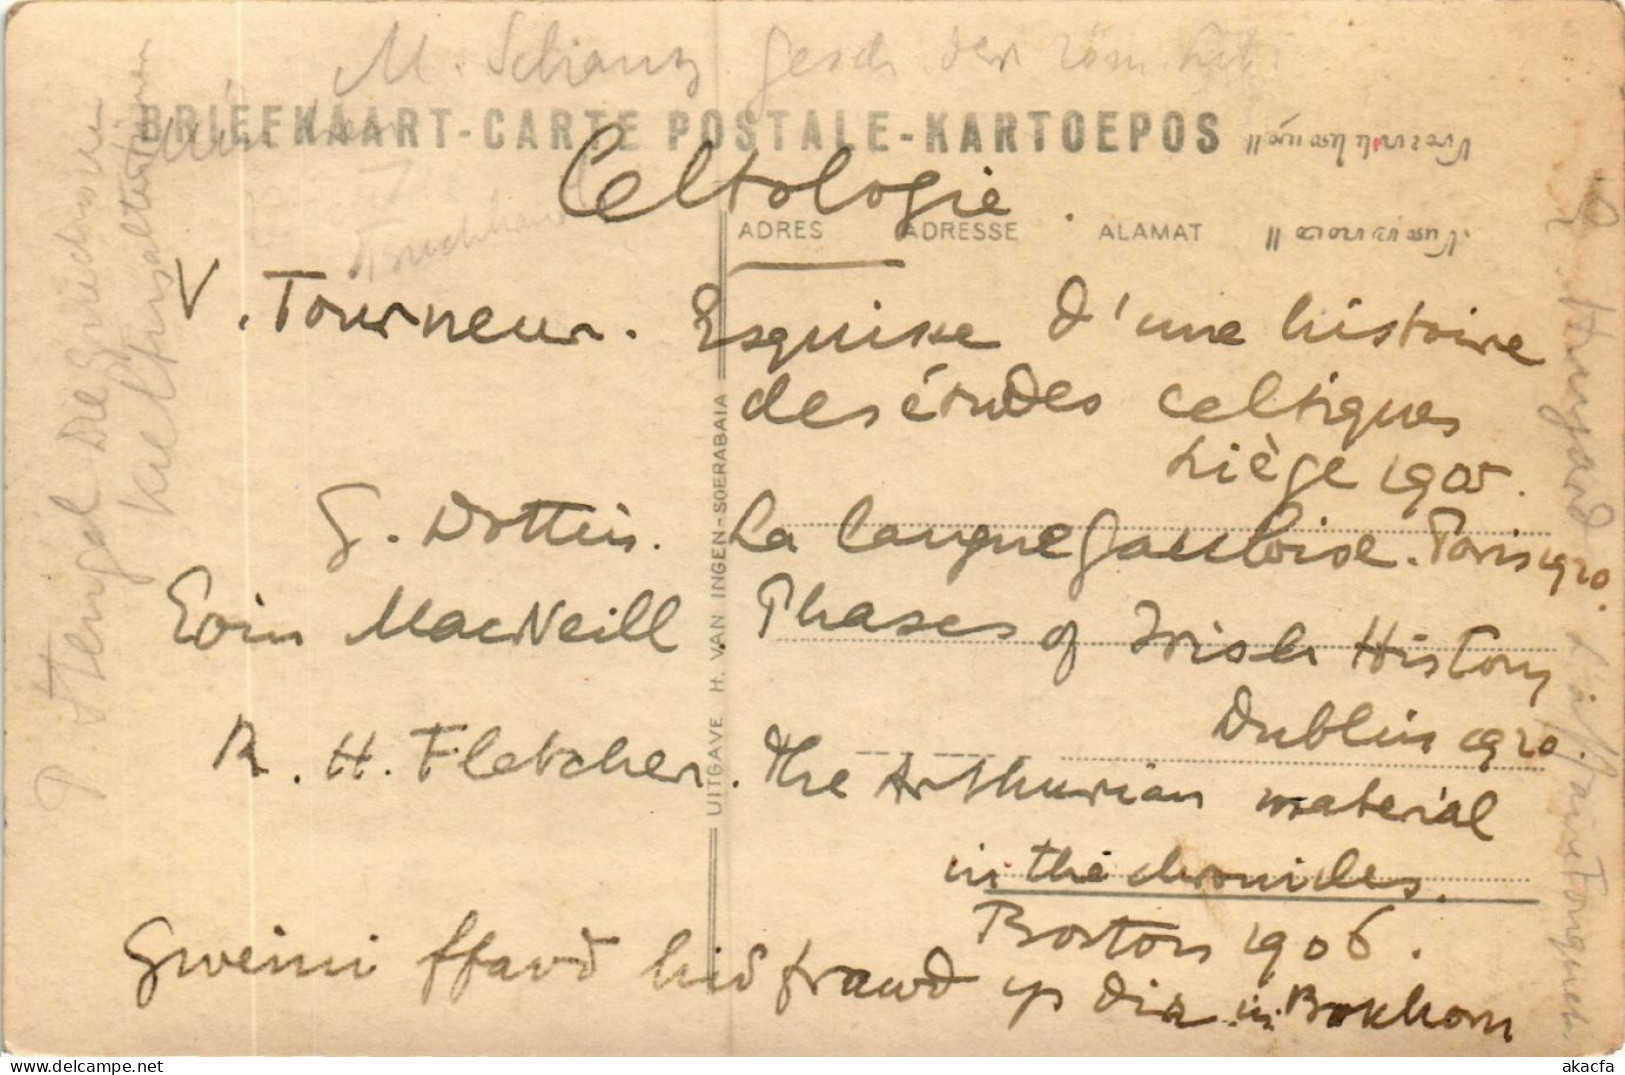 M. Schanz Gesch. der röm Lit.
BRIEFKAART-CARTE POSTALE-KARTOEPOS
Celtologie.
ADRES ADRESSE ALAMAT
V. Tourneur. Esquisse d'une histoire
des études celtiques
Liège 1905.
G. Dottin. La langue gauloise. Paris 1920.
Eoin MacNeill Phases of Irish History
Dublin 1920.
R. H. Fletcher. The Arthurian material
in the chronicles.
Boston 1906.
Gweini ffawd hid frawd yp dir in Bokhorn
UITGAVE H. VAN INGEN-SOERABAIA
P. Stengel Die griechischen
Kultusaltertümer